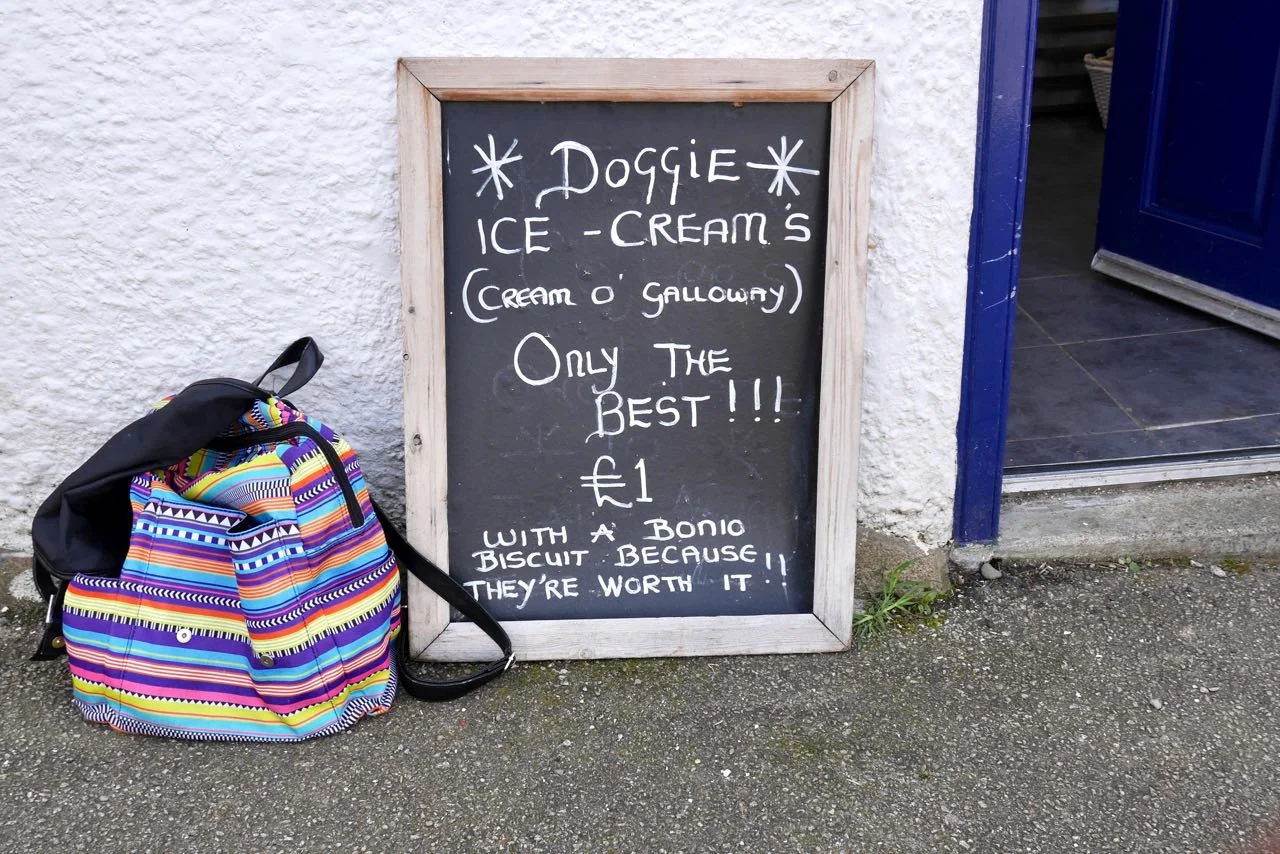 * DOGGIE *
ICE - CREAM'S
(CREAM O' GALLOWAY)
ONLY THE
BEST !!!
£1
WITH A BONIO
BISCUIT BECAUSE
THEY'RE WORTH IT !!